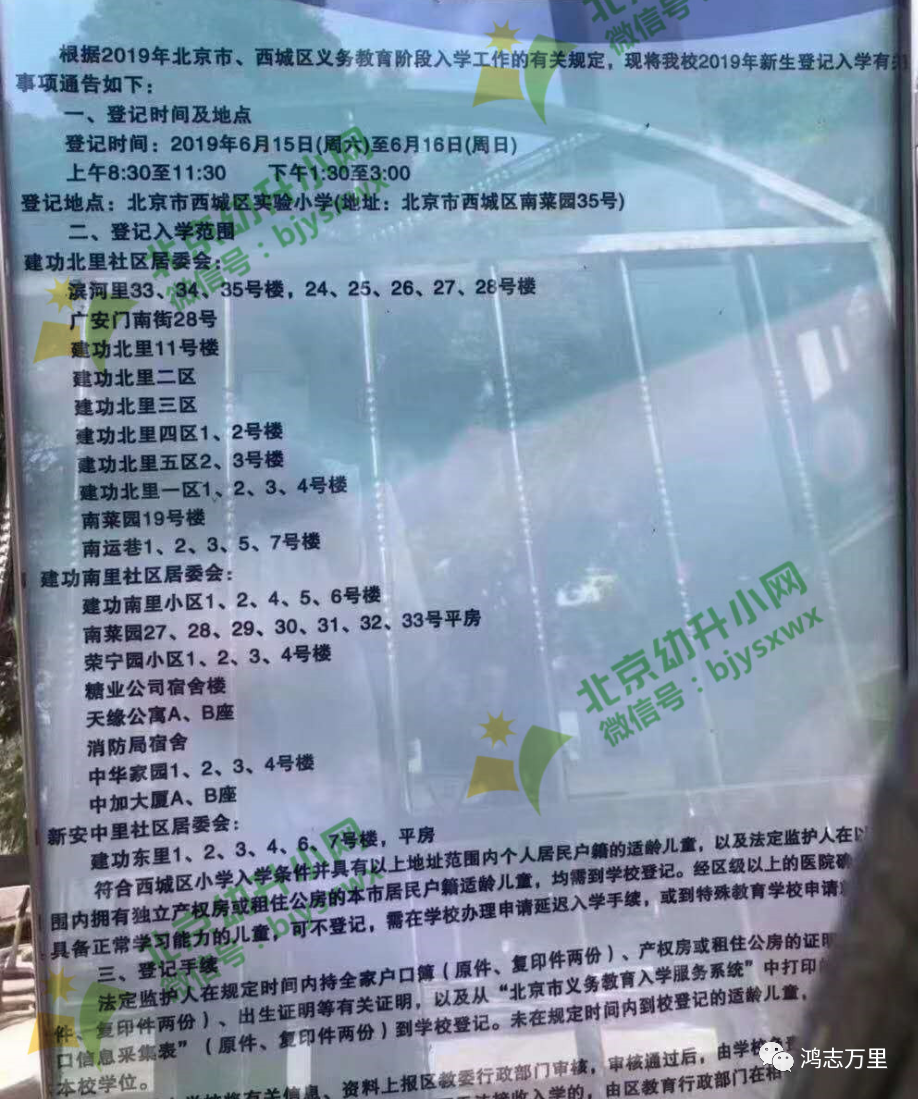 北京幼升小网
微信号：bjysxwx
根据2019年北京市、西城区义务教育阶段入学工作的有关规定，现将我校2019年新生登记入学有关
事项通告如下：
一、登记时间及地点
登记时间：2019年6月15日(周六)至6月16日(周日)
上午8:30至11:30 下午1:30至3:00
登记地点：北京市西城区实验小学(地址：北京市西城区南菜园35号)
二、登记入学范围
建功北里社区居委会：
滨河里33、34、35号楼，24、25、26、27、28号楼
广安门南街28号
建功北里11号楼
建功北里二区
建功北里三区
建功北里四区1、2号楼
建功北里五区2、3号楼
建功北里一区1、2、3、4号楼
南菜园19号楼
南运巷1、2、3、5、7号楼
建功南里社区居委会：
建功南里小区1、2、4、5、6号楼
南菜园27、28、29、30、31、32、33号平房
荣宁园小区1、2、3、4号楼
糖业公司宿舍楼
天缘公寓A、B座
消防局宿舍
中华家园1、2、3、4号楼
中加大厦A、B座
新安中里社区居委会：
建功东里1、2、3、4、6、7号楼，平房
符合西城区小学入学条件并具有以上地址范围内个人居民户籍的适龄儿童，以及法定监护人在以
围内拥有独立产权房或租住公房的本市居民户籍适龄儿童，均需到学校登记。经区级以上的医院确
具备正常学习能力的儿童，可不登记，需在学校办理申请延迟入学手续，或到特殊教育学校申请
三、登记手续
法定监护人在规定时间内持全家户口簿（原件、复印件两份）、产权房或租住公房的证明
件、复印件两份）、出生证明等有关证明，以及从“北京市义务教育入学服务系统”中打印
口信息采集表”（原件、复印件两份）到学校登记。未在规定时间内到校登记的适龄儿童，
本校学位。
将有关信息、资料上报区教委行政部门审核，审核通过后，由学校
接收入学的，由区教育行政部门在相
北京幼升小网
微信号：bjysxwx
北京幼升小网
微信号：bjysxwx
北京幼升小网
微信号：bjysxwx
鸿志万里